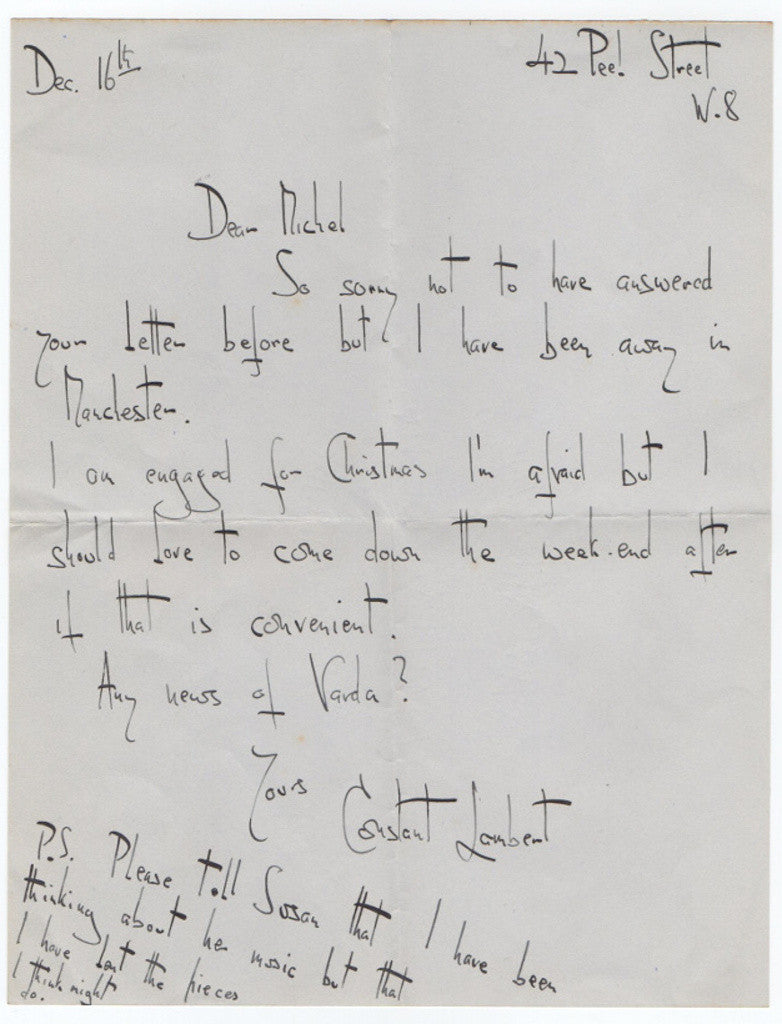 Dec. 16th
42 Peel Street
W.8
Dear Michel
So sorry not to have answered
your letter before but I have been away in
Manchester.
I am engaged for Christmas I'm afraid but I
should love to come down the week-end after
if that is convenient.
Any news of Varda?
Yours Constant Lambert
P.S. Please tell Susan that I have been
thinking about her music but that
I have lent the pieces
I think might
do.